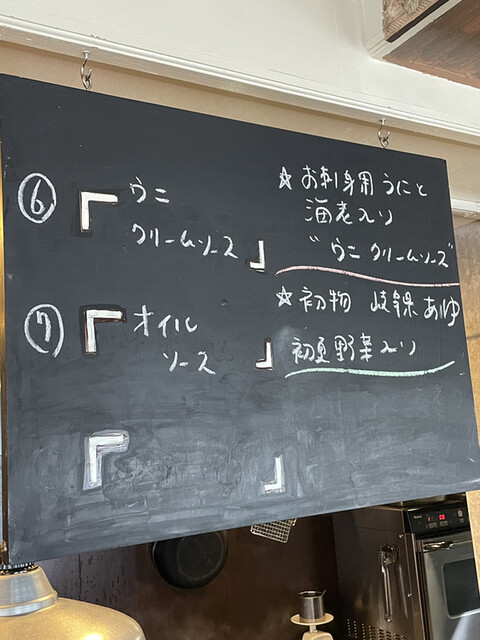 ⑥ 「ウニ
クリームソース」
☆お刺身用うにと
海老入り
"ウニ クリームソース"
⑦ 「オイル
ソース」
☆初物 岐阜県 あゆ
初夏野菜入り
「 」